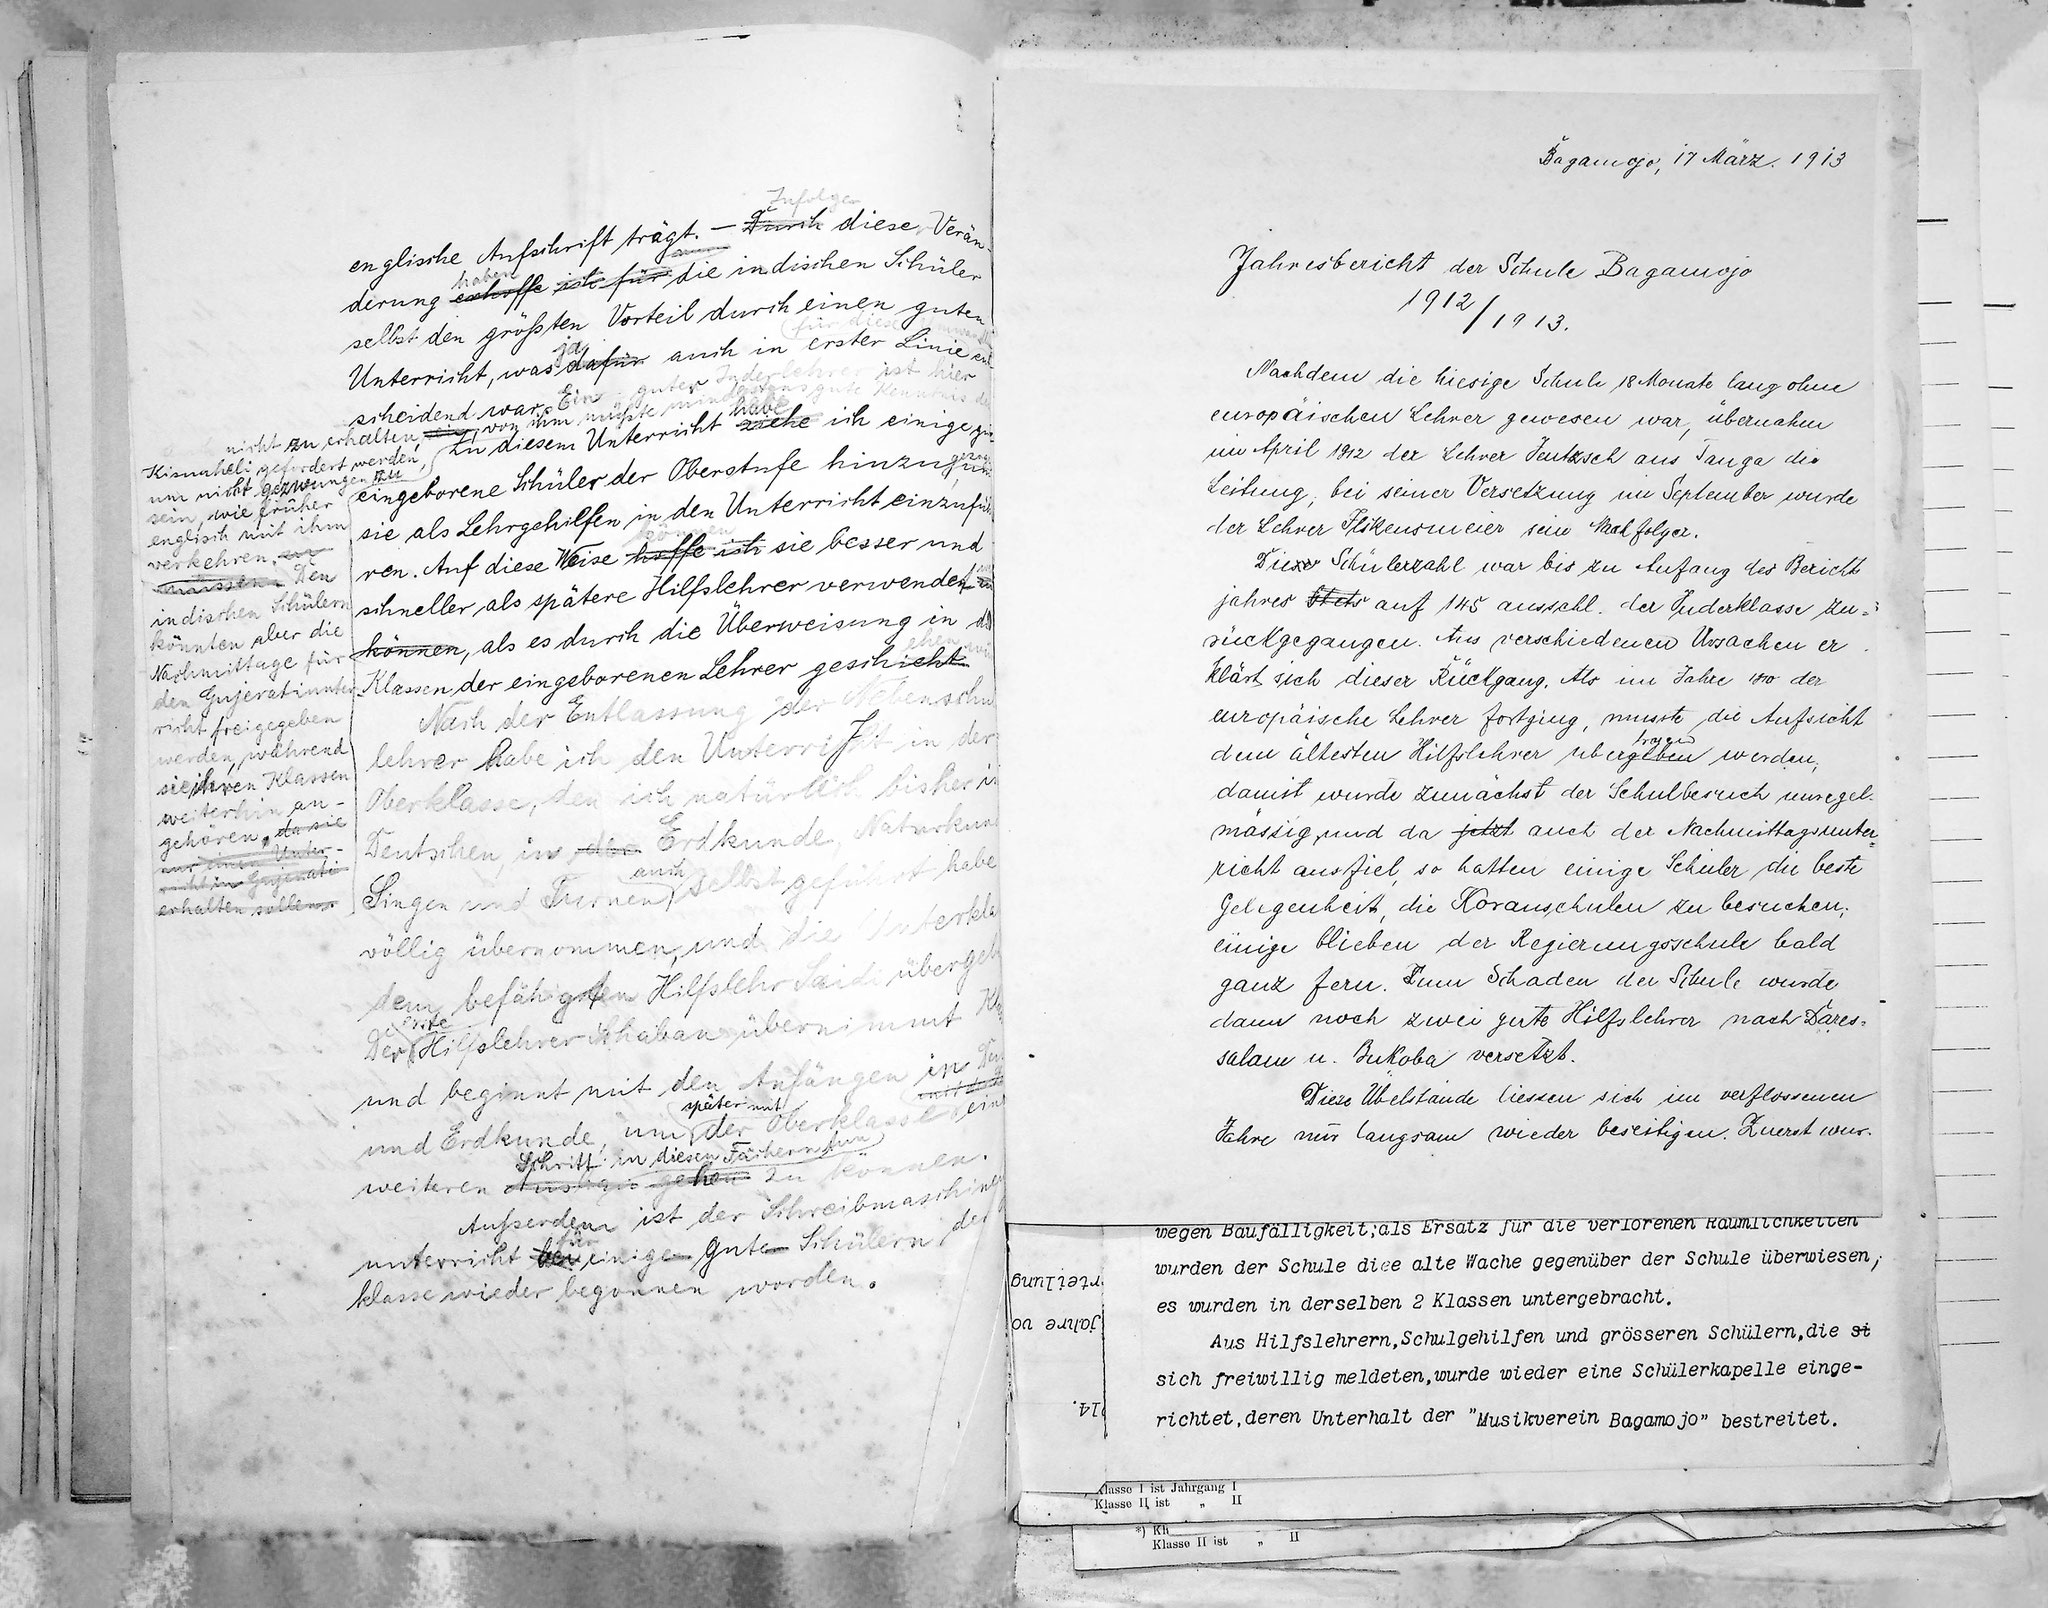 Zufolge
englische Aufschrift trägt. — Durch diese Verän-
haben
derung erhoffe ich für die indischen Schüler
selbst den größten Vorteil durch einen guten
für diese
ja
Unterricht, was dafür auch in erster Linie ent-
scheidend war. Ein guter Inderlehrer ist hier
nicht zu erhalten, von ihm müßte mindestens gute Kenntnis des
Kisuaheli gefordert werden,
um nicht gezwungen zu
sein, wie früher
englisch mit ihm
verkehren. zu
müssen. Den
indischen Schülern
könnten aber die
Nachmittage für
den Gujeratiunter-
richt freigegeben
werden, während
sie ihren Klassen
weiterhin an-
gehören, da sie
nur einen Unter-
richt in Gujerati
erhalten sollen.
habe
Zu diesem Unterricht ziehe ich einige
gezogen
eingeborene Schüler der Oberstufe hinzu, um
sie als Lehrgehilfen in den Unterricht einzufüh-
können
ren. Auf diese Weise hoffe ich sie besser und
schneller als spätere Hilfslehrer verwenden
können, als es durch die Überweisung in die
ehen
Klassen der eingeborenen Lehrer geschieht
Nach der Entlassung der Nebenschul
lehrer habe ich den Unterricht in der
Oberklasse, den ich natürlich bisher in
Deutschen, in der Erdkunde, Naturkunde
auch
Singen und Turnen, selbst geführt habe
völlig übernommen, und die Unterklasse
dem befähigten Hilfslehr Saidi übergeben
erste
Der Hilfslehrer Schaban übernimmt
und beginnt mit den Anfängen in
später mit
und Erdkunde, um der Oberklasse
Schritt in diesen Fächern
weiteren gehen zu können.
Ausserdem ist der Schreibmaschinen
für
unterricht bei einigen guten Schülern der
klasse wieder begonnen worden.
Bagamojo, 17 März. 1913
Jahresbericht der Schule Bagamojo
1912/1913.
Nachdem die hiesige Schule 18 Monate lang ohne
europäischen Lehrer gewesen war, übernahm
im April 1912 der Lehrer Jentzsch aus Tanga die
Leitung, bei seiner Versetzung im September wurde
der Lehrer Flikensmeier sein Nachfolger.
Diese Schülerzahl war bis zu Anfang des Bericht
jahres stets auf 145 ausschl. der Inderklasse zu-
rückgegangen. Aus verschiedenen Ursachen er
klärt sich dieser Rückgang. Als im Jahre 1910 der
europäische Lehrer fortging, musste die Aufsicht
tragen
dem ältesten Hilfslehrer übergeben werden,
damit wurde zunächst der Schulbesuch unregel-
mässig, und da jetzt auch der Nachmittagsunter-
richt ausfiel, so hatten einige Schüler die beste
Gelegenheit, die Koranschulen zu besuchen;
einige blieben der Regierungsschule bald
ganz fern. Zum Schaden der Schule wurde
dann noch zwei gute Hilfslehrer nach Dares-
salam u. Bukoba versetzt.
Diese Übelstände liessen sich im verflossenen
Jahre nur langsam wieder beseitigen. Zuerst wur-
wegen Baufälligkeit; als Ersatz für die verlorenen Räumlichkeiten
wurden der Schule diee alte Wache gegenüber der Schule überwiesen,
es wurden in derselben 2 Klassen untergebracht.
Aus Hilfslehrern, Schulgehilfen und grösseren Schülern, die si
sich freiwillig meldeten, wurde wieder eine Schülerkapelle einge-
richtet, deren Unterhalt der "Musikverein Bagamojo" bestreitet.
rteilung
Jahre vo
914.
Klasse I ist Jahrgang I
Klasse II ist „ II
*) Kl
Klasse II ist „ II